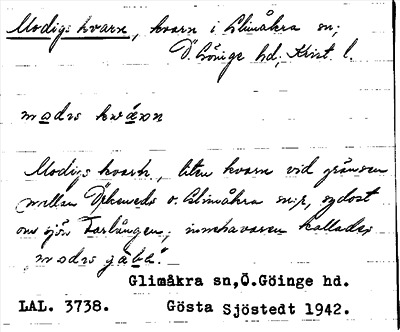 Modigs kvarn, kvarn i Glimåkra sn;
Ö. Göinge hd, Krist. l.
Modigs kvarn, liten kvarn vid gränsen
mellan Örkeneds o. Glimåkra sn:r, sydost
om sjön Tarlången; innehavaren kallades
Glimåkra sn,Ö.Göinge hd.
LAL. 3738. Gösta Sjöstedt 1942.